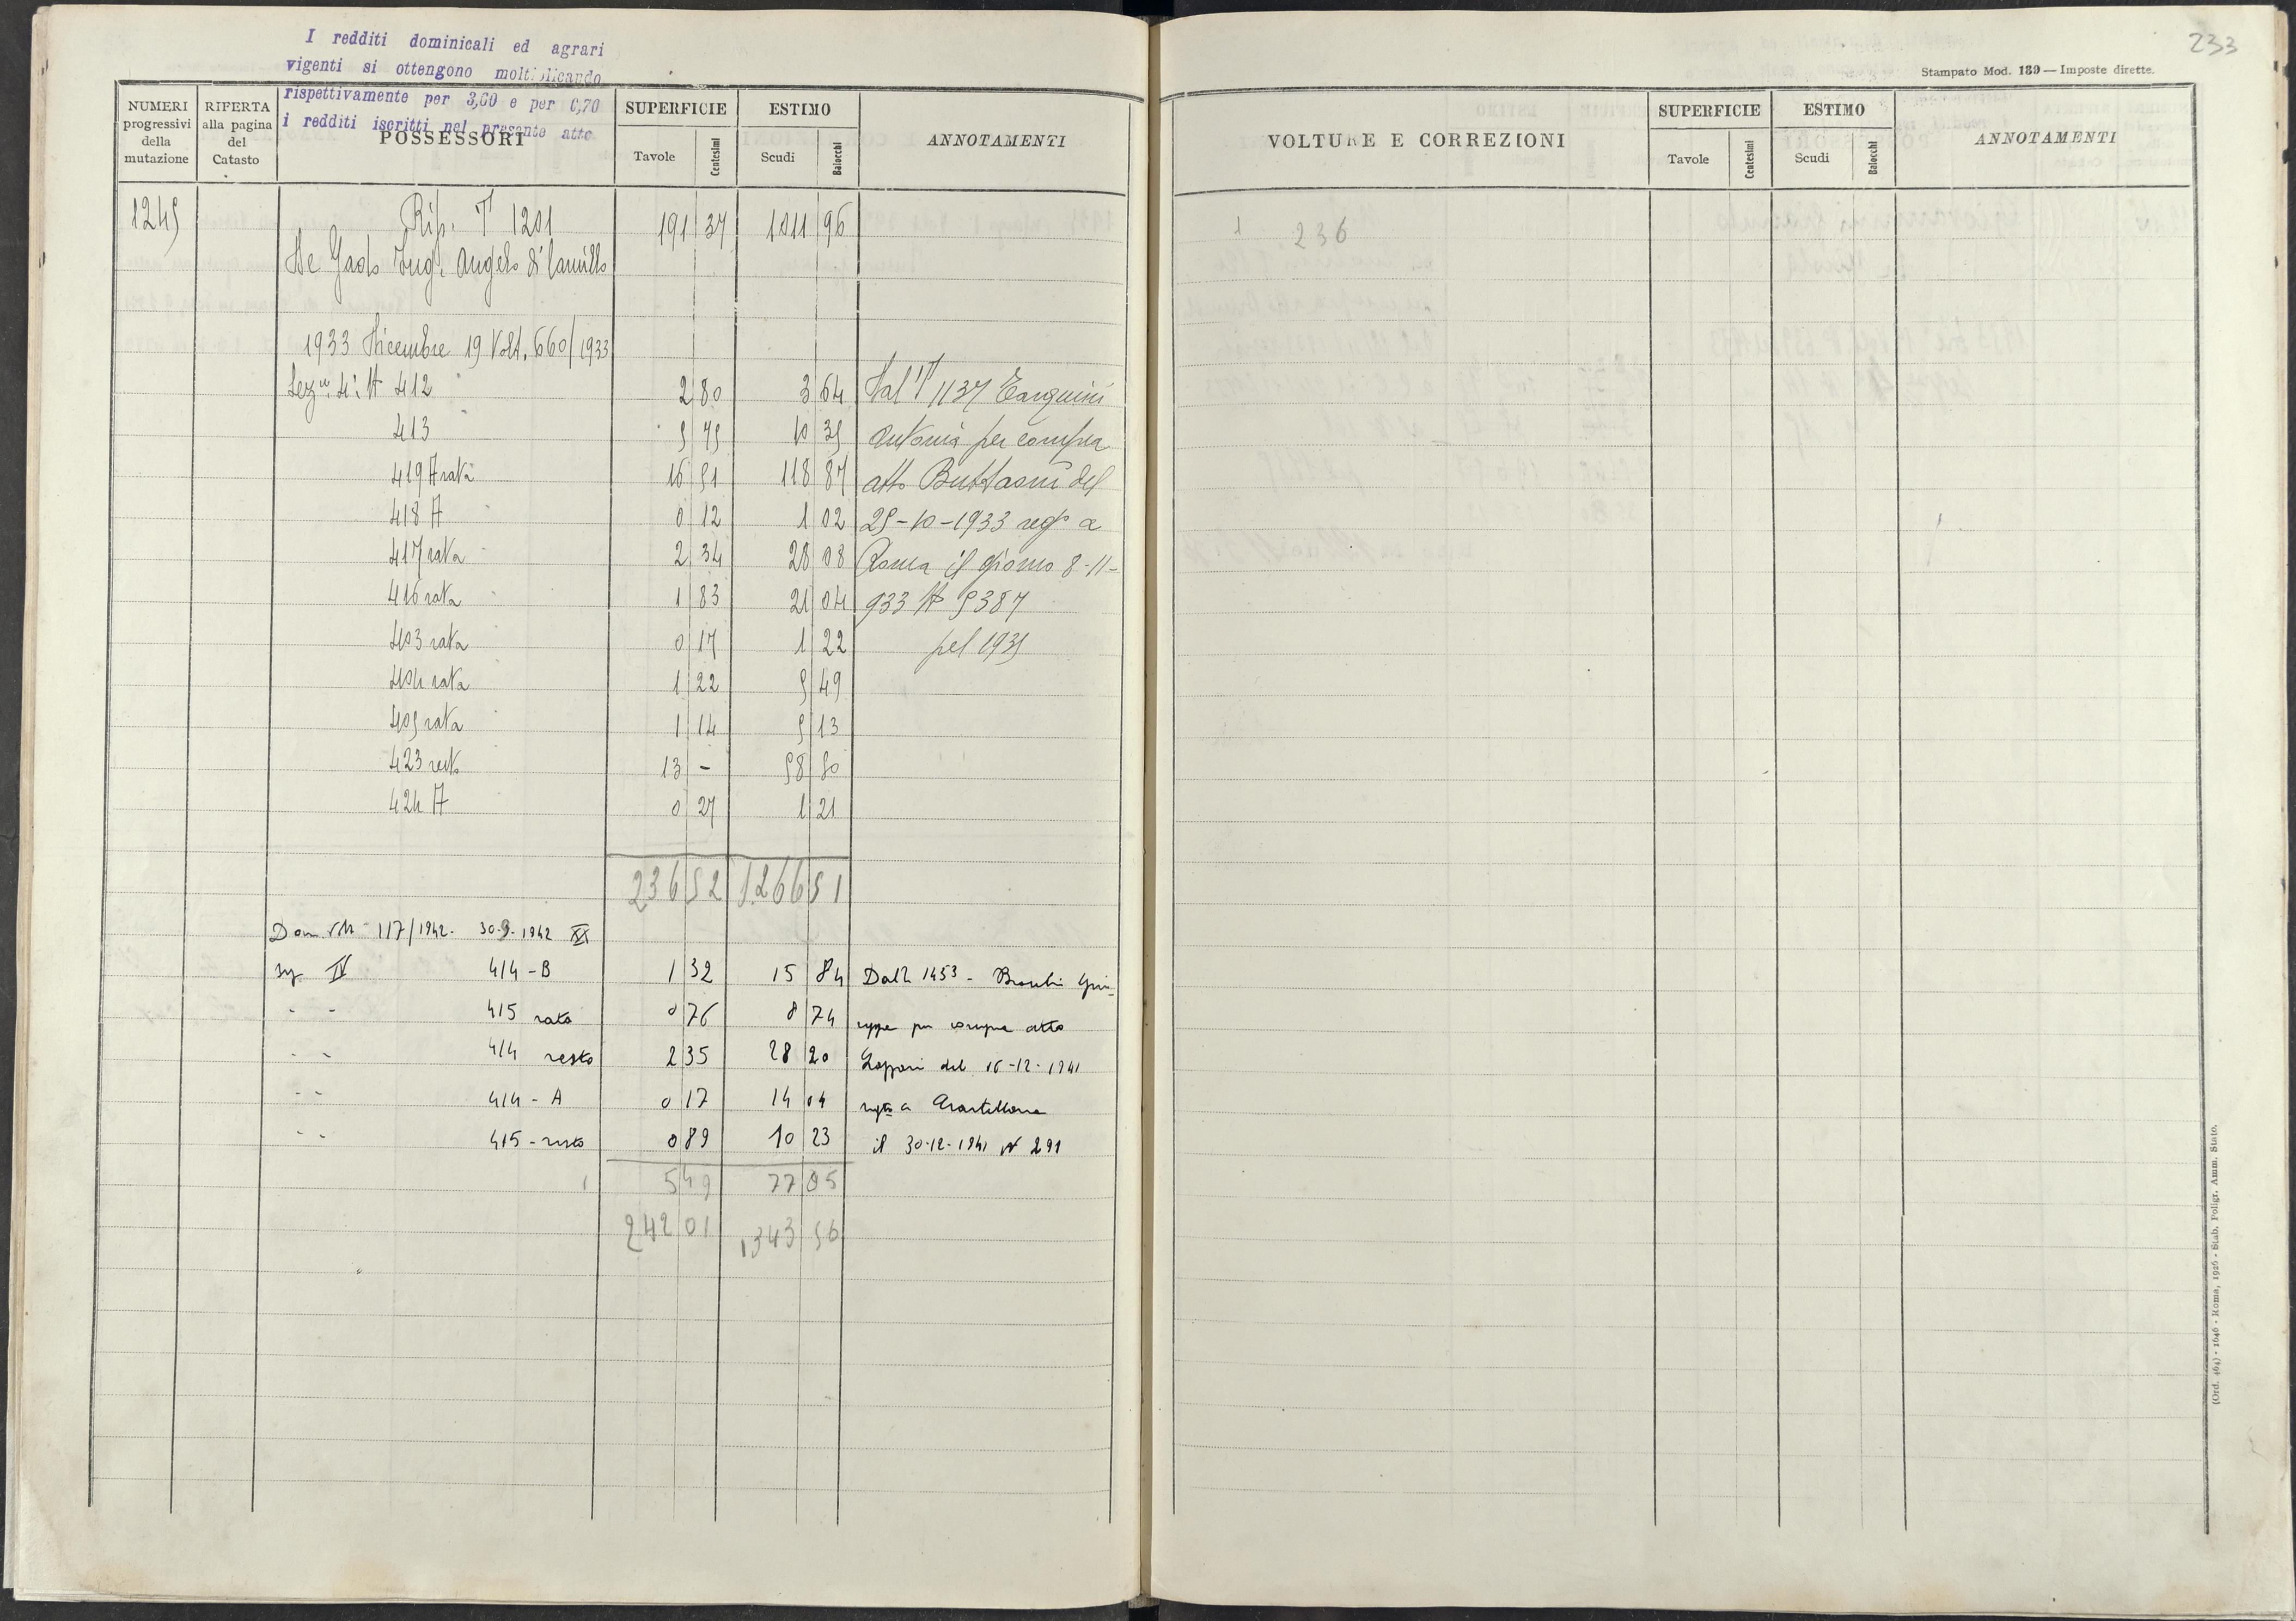 I redditi dominicali ed agrari
vigenti si ottengono moltiplicando
rispettivamente per 3,60 e per 6,70
i redditi iscritti nel presente atto
NUMERI progressivi della mutazione
RIFERTA alla pagina del Catasto
POSSESSORI
SUPERFICIE Tavole Centesimi
ESTIMO Scudi Baiocchi
ANNOTAMENTI
1245 Rip. T 1201 191 37 1011 96
De Angelo di Camillo
1933 Dicembre 19 Volt. 660/1933
Sez. 4ª N 412 2 80 3 64 Dal T 1137 Tarquini
413 5 75 10 35 Antonia per compra
419 A rata 16 51 118 87 atto Buttaoni del
418 A 0 12 1 02 25-10-1933 reg° a
417 rata 2 34 28 08 Roma il giorno 8-11-
416 rata 1 83 21 04 933 N 5387
403 rata 0 17 1 22 pel 1935
404 rata 1 22 5 49
405 rata 1 14 5 13
423 resto 13 - 58 50
424 A 0 27 1 21
236 52 1266 51
Dom 117/1942 - 30-9-1942 XX
IV 414-B 1 32 15 84 Dal 1453 -
" " 415 rata 0 76 8 74 per compra atto
" " 414 resto 2 35 28 20 del 16-12-1941
" " 414-A 0 17 14 04 a
" " 415-resto 0 89 10 23 il 30-12-1941 N 291
5 49 77 05
242 01 1343 56
233
Stampato Mod. 130 — Imposte dirette.
VOLTURE E CORREZIONI
SUPERFICIE Tavole Centesimi
ESTIMO Scudi Baiocchi
ANNOTAMENTI
1 236
(Ord. 464) - 1646 - Roma, 1926 - Stab. Poligr. Amm. Stato.